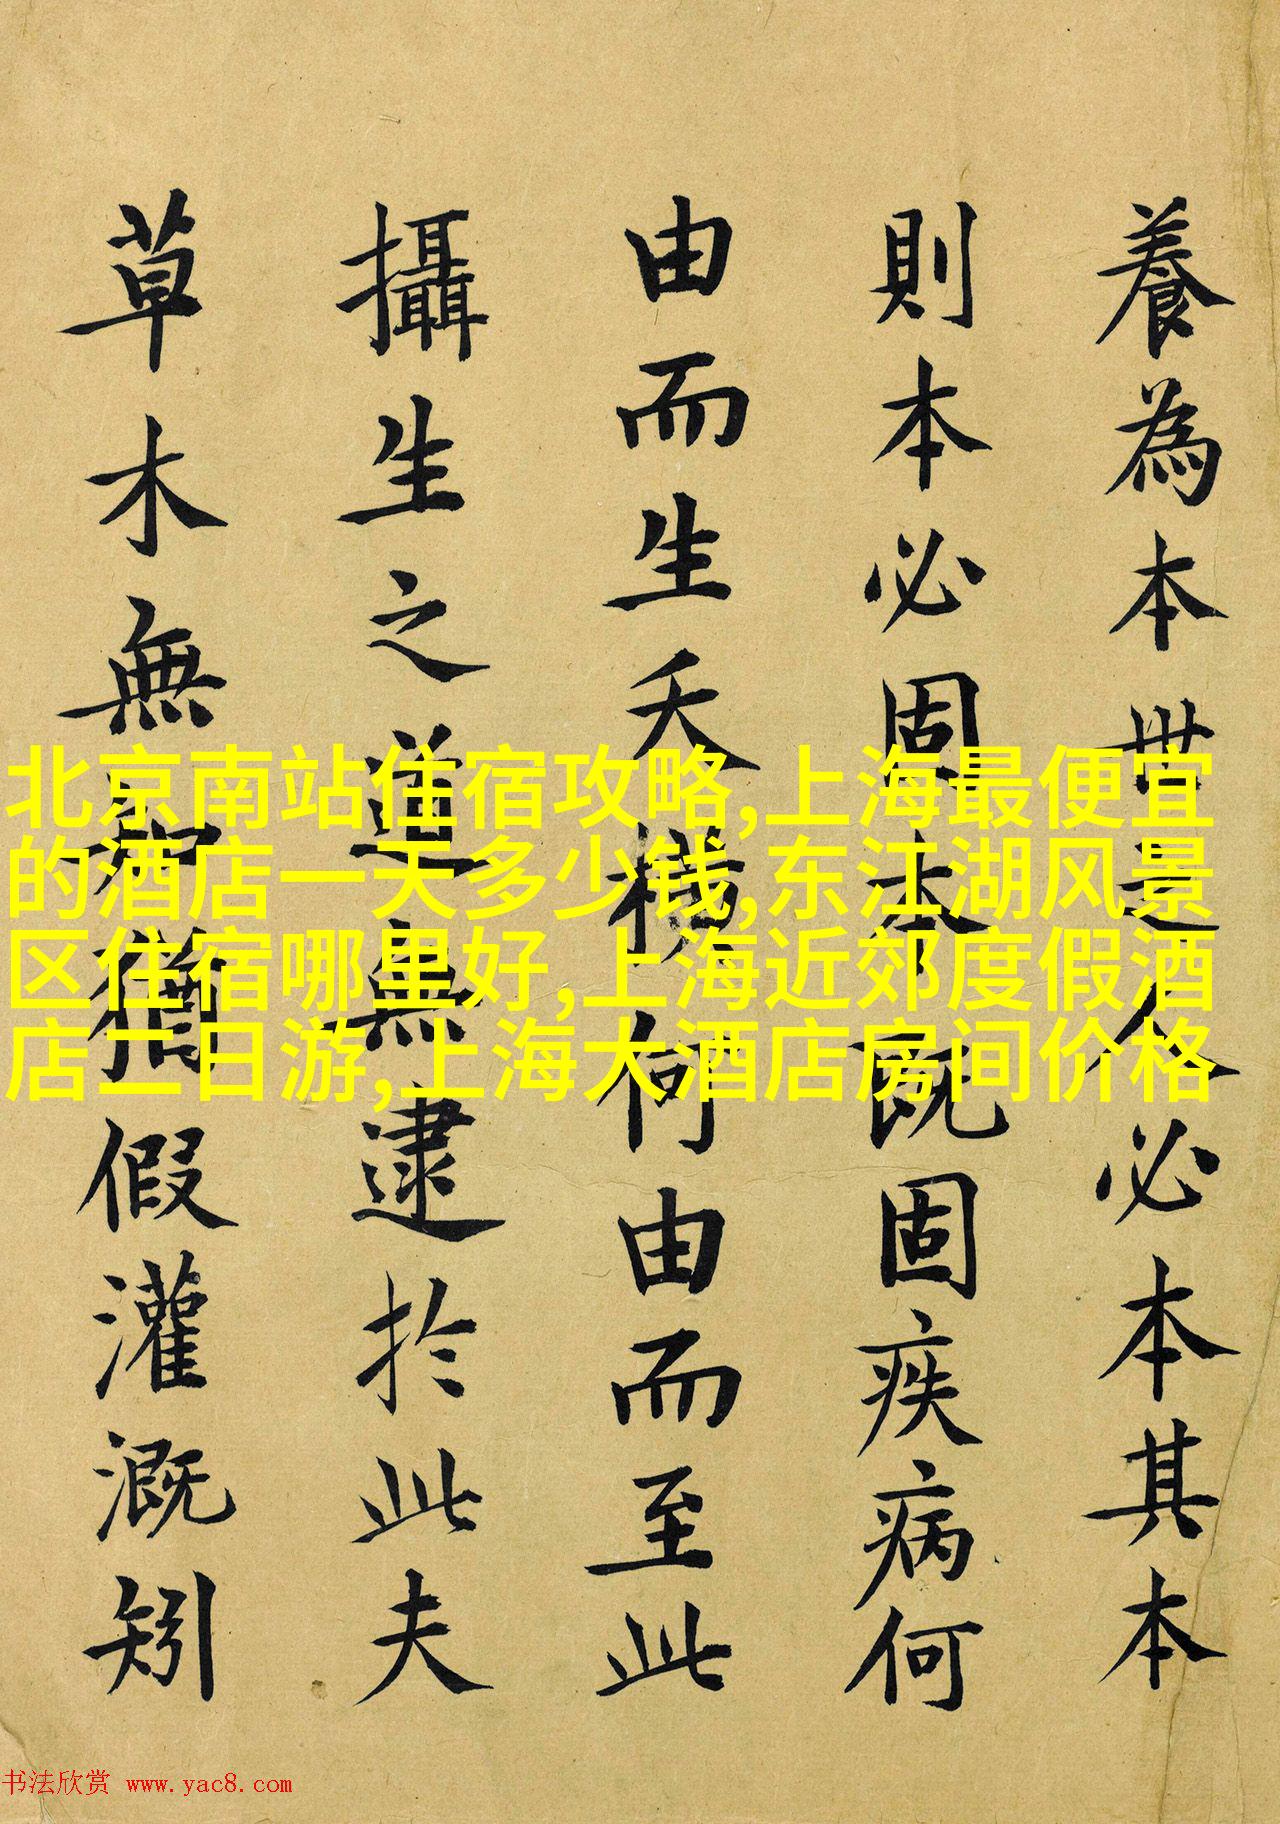 養為本世之人必本其本
則本必固本既固疾病何
由而生夭橫何由而至此
攝生之道無逮於此夫
草木無知猶假灌溉矧
北京南站住宿攻略,上海最便宜
的酒店一天多少钱,东江湖风景
区住宿哪里好,上海近郊度假酒
店二日游,上海大酒店房间价格
书法欣赏 www.yac8.com